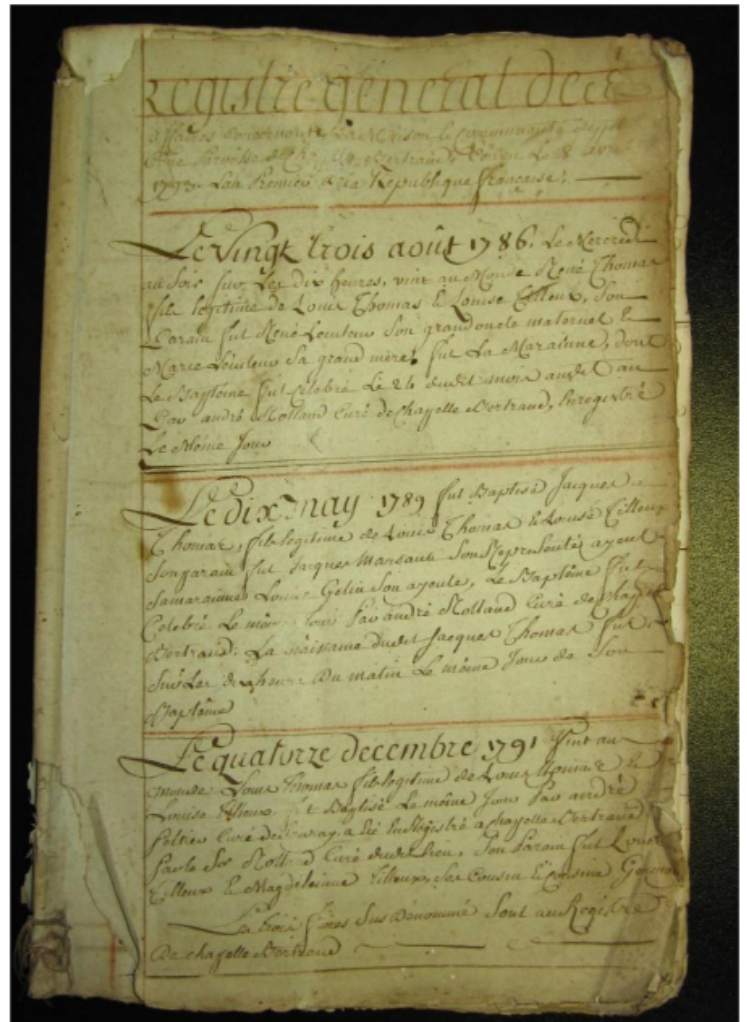 Registre general de
affaires concernant La Maison & Communauté
Paroisse de Bertrand, Le 8 avril
1793. Lan Premier de la Republique francaise.
Le Vingt trois août 1786. Le Mercredi
au Soir Sur Les dix heures, vint au Monde René Thomas
fils legitime de Louis Thomas & Louise Tilleux, Son
Parain fut René Lecuteur Son grand oncle maternel &
Marie Lecuteur Sa grand mère, fut La Marainne, dont
Le Baptême fut Celebré Le 26 dudit mois audit an
Par andré Rolland Curé de Chapelle Bertrand, Enregistré
Le Même Jour
Le dix may 1789 fut Baptisé Jacques
Thomas, fils legitime de Louis Thomas & Louise Tilleux
Son parain fut Jacques Marsault Son Representé ayeul
Samarainne Louise Gelin Son ayeule, Le Baptême fut
Celebré Le même Jour Par andré Rolland Curé de Chapelle
Bertrand. La naissance dudit Jacques Thomas fut
Sur Les dix heures Du matin Le même Jour de Son
Baptême
Le quatorze decembre 1791 Vint au
monde Louis Thomas fils legitime de Louis Thomas &
Louise Tilleux. fut Baptisé Le même Jour Par andré
Curé de a été EnRegistré a Chapelle Bertrand
Par le Sr Rolland Curé dudit Lieu, Son Parain fut Louis
Tilleux & Magdeleinne Tilleux, Ses Cousin & Cousine Germains
Les trois freres Sus Dénommé Sont au Registre
De chapelle Bertrand